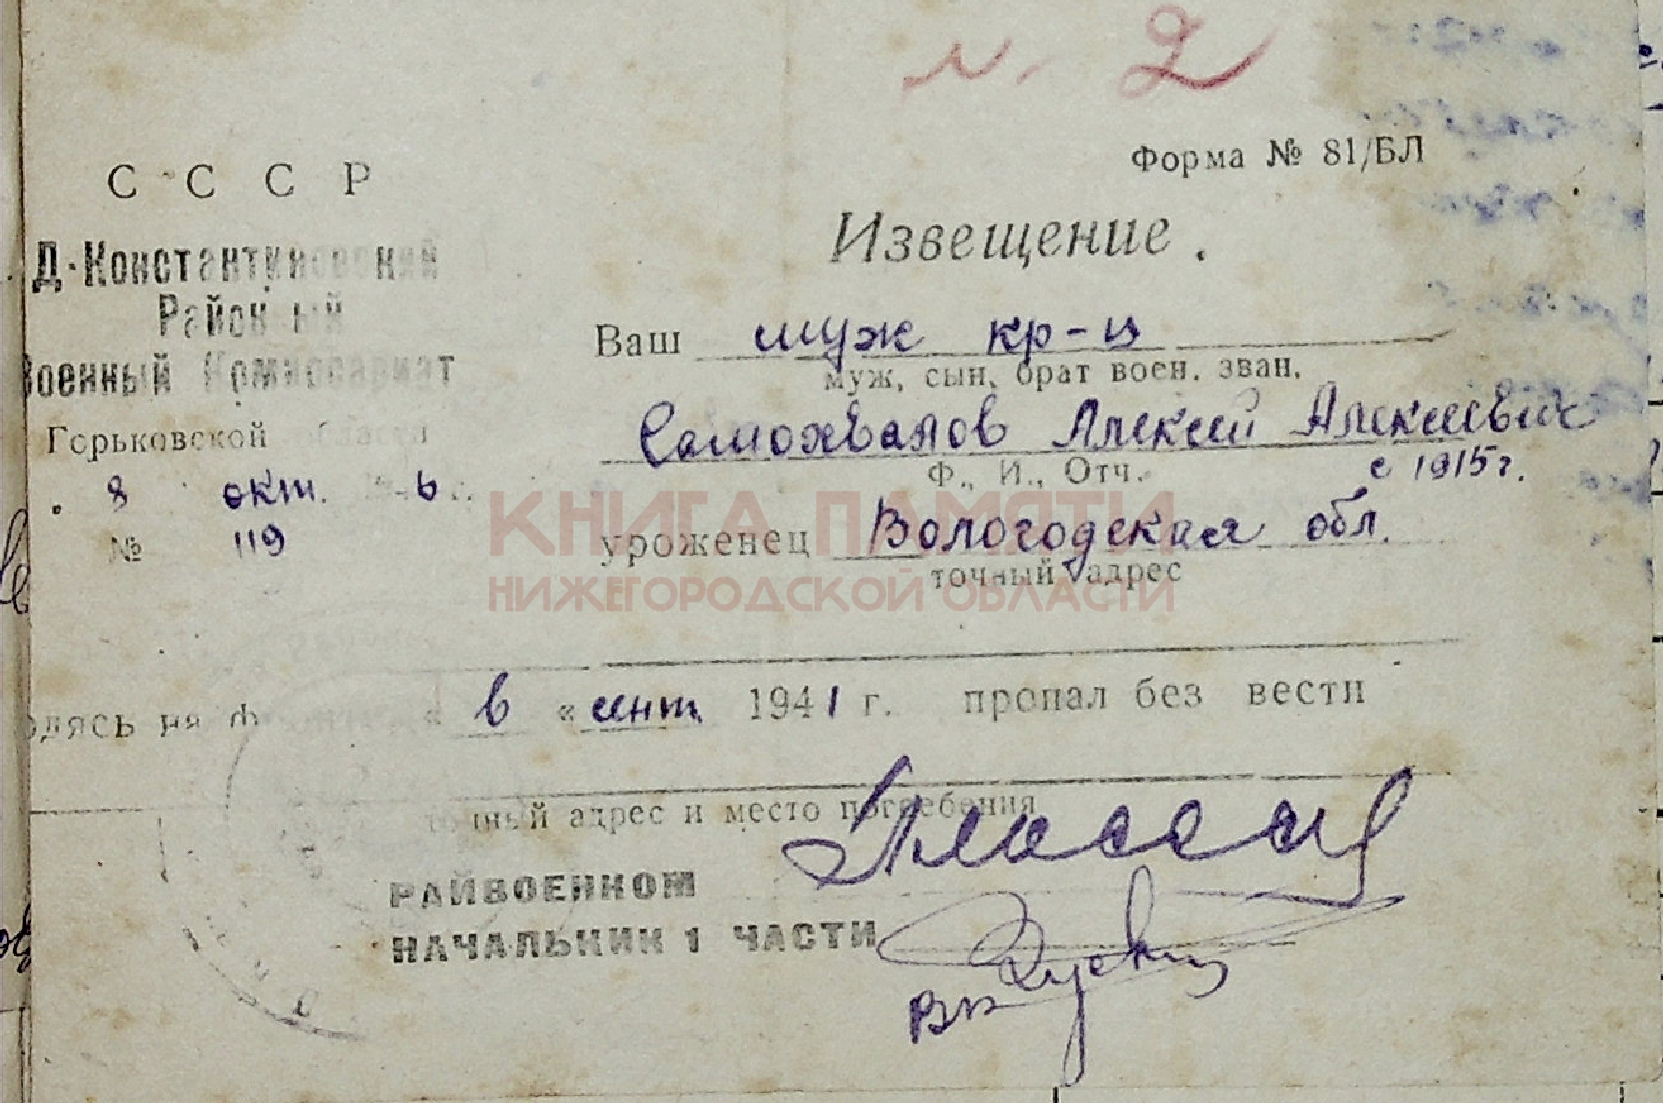 N. 2
Форма № 81/БЛ
СССР
Д-Константиновский
Районный
Военный Комиссариат
Горьковской области
8 окт. 1946 г.
№ 119
Извещение.
Ваш муж кр-ц
муж, сын, брат воен. зван.
Самохвалов Алексей Алексеевич
Ф., И., Отч. с 1915 г.
уроженец Вологодская обл.
точный адрес
КНИГА ПАМЯТИ
НИЖЕГОРОДСКОЙ ОБЛАСТИ
одясь на фронте « в « сент. 1941 г. пропал без вести
точный адрес и место погребения
РАЙВОЕНКОМ
НАЧАЛЬНИК 1 ЧАСТИ